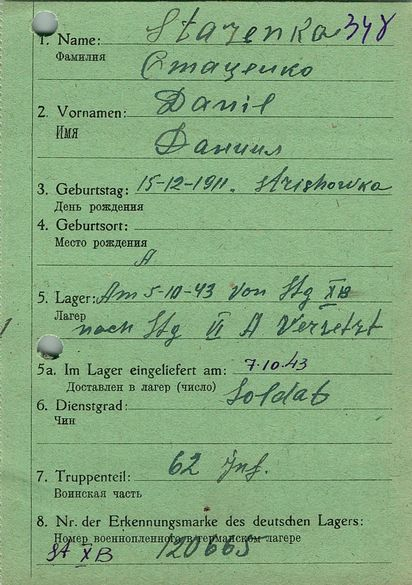 1. Name: Stazenko 348
Фамилия
Стаценко
2. Vornamen: Danil
Имя
Даниил
3. Geburtstag: 15-12-1911. Strishowka
День рождения
4. Geburtsort:
Место рождения
A
5. Lager: Am 5-10-43 von Stg XB
Лагер
nach Stg VI A Versetzt
5a. Im Lager eingeliefert am: 7.10.43
Доставлен в лагер (число)
6. Dienstgrad: Soldat
Чин
7. Truppenteil: 62 Inf.
Воинская часть
8. Nr. der Erkennungsmarke des deutschen Lagers:
Номер военнопленного в германском лагере
St XB 120665